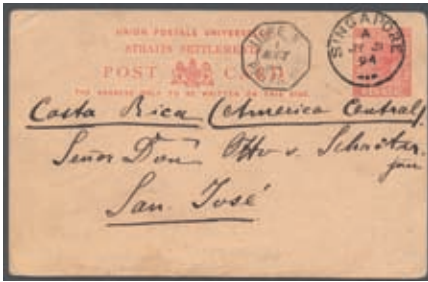 UNION POSTALE UNIVERSELLE
STRAITS SETTLEMENTS
POST CARD
THE ADDRESS ONLY TO BE WRITTEN ON THIS SIDE
SINGAPORE
A
94
Costa Rica (America Central)
Señor Don Otto v.
jun
San José